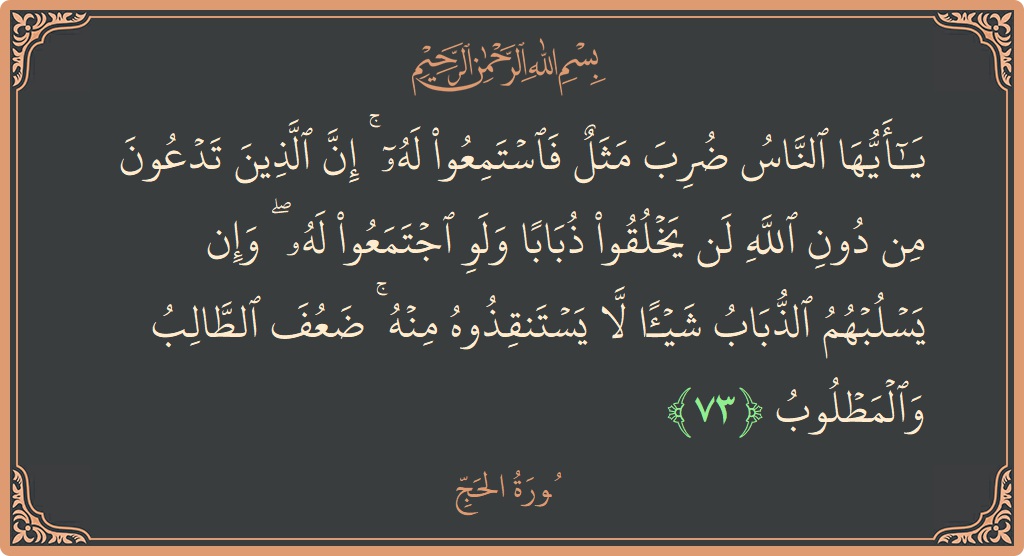 بِسْمِ اللَّهِ الرَّحْمَٰنِ الرَّحِيمِ
يَـٰٓأَيُّهَا ٱلنَّاسُ ضُرِبَ مَثَلٌ فَٱسْتَمِعُوا۟ لَهُۥٓ ۚ إِنَّ ٱلَّذِينَ تَدْعُونَ
مِن دُونِ ٱللَّهِ لَن يَخْلُقُوا۟ ذُبَابًا وَلَوِ ٱجْتَمَعُوا۟ لَهُۥ ۖ وَإِن
يَسْلُبْهُمُ ٱلذُّبَابُ شَيْـًٔا لَّا يَسْتَنقِذُوهُ مِنْهُ ۚ ضَعُفَ ٱلطَّالِبُ
وَٱلْمَطْلُوبُ ﴿٧٣﴾
سُورَةُ الحَجِّ